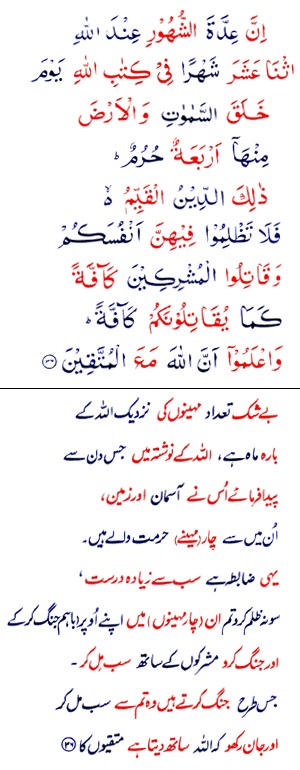 اِنَّ عِدَّةَ الشُّهُوْرِ عِنْدَ اللهِ
اثْنَا عَشَرَ شَهْرًا فِيْ كِتٰبِ اللهِ يَوْمَ
خَلَقَ السَّمٰوٰتِ وَالْاَرْضَ
مِنْهَاۤ اَرْبَعَةٌ حُرُمٌ ؕ
ذٰلِكَ الدِّيْنُ الْقَيِّمُ ۙ
فَلَا تَظْلِمُوْا فِيْهِنَّ اَنْفُسَكُمْ
وَقَاتِلُوا الْمُشْرِكِيْنَ كَآفَّةً
كَمَا يُقَاتِلُوْنَكُمْ كَآفَّةً ؕ
وَاعْلَمُوْۤا اَنَّ اللهَ مَعَ الْمُتَّقِيْنَ ۳۶
بےشک تعداد مہینوں کی نزدیک اللہ کے
بارہ ماہ ہے، اللہ کے نوشتہ میں جس دن سے
پیدا فرمائے اُس نے آسمان اور زمین،
اُن میں سے چار (مہینے) حرمت والے ہیں۔
یہی ضابطہ ہے سب سے زیادہ درست،
سو نہ ظلم کرو تم ان (چار مہینوں) میں اپنے اُوپر (باہم جنگ کر کے
اور جنگ کرو مشرکوں کے ساتھ سب مل کر ۔
جس طرح جنگ کرتے ہیں وہ تم سے سب مل کر
اور جان رکھو کہ اللہ ساتھ دیتا ہے متقیوں کا ۳۶